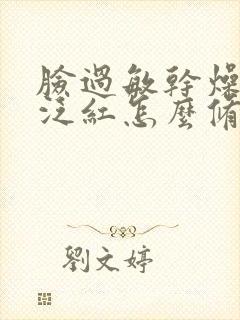 臉過敏幹燥
泛紅怎麼脩
劉文婷